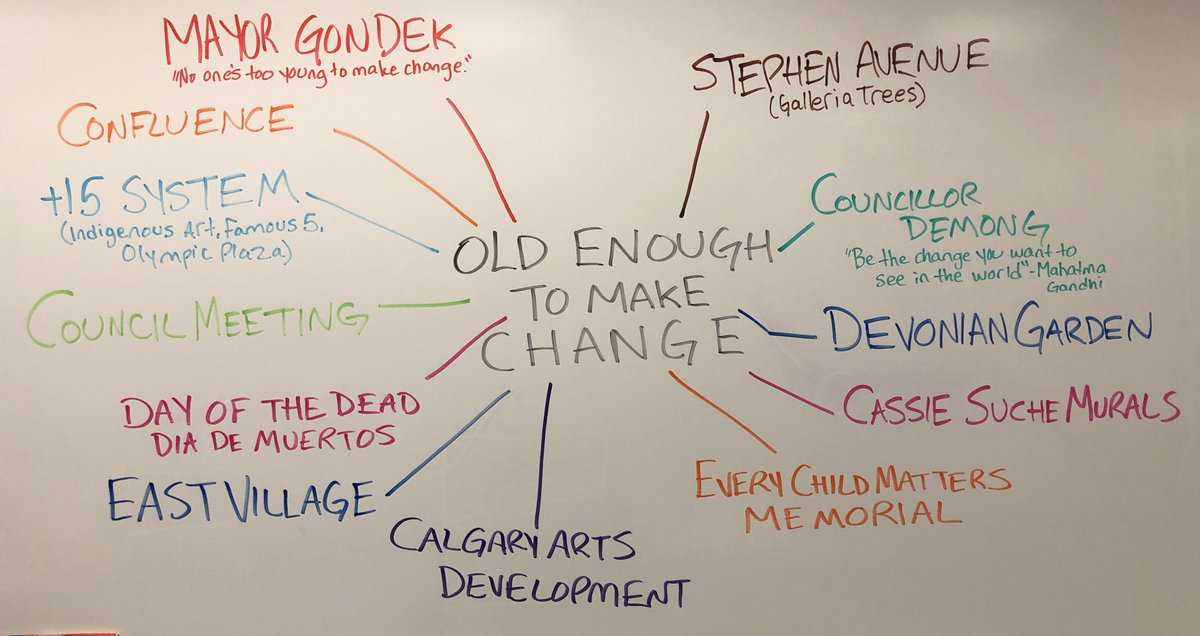 MAYOR GONDEK
"No one's too young to make change."
CONFLUENCE
+15 SYSTEM
(Indigenous Art, Famous 5,
Olympic Plaza)
COUNCIL MEETING
DAY OF THE DEAD
DIA DE MUERTOS
EAST VILLAGE
CALGARY ARTS
DEVELOPMENT
OLD ENOUGH
TO MAKE
CHANGE
STEPHEN AVENUE
(Galleria Trees)
COUNCILLOR
DEMONG
"Be the change you want to
see in the world"-Mahatma
Gandhi
DEVONIAN GARDEN
CASSIE SUCHE MURALS
EVERY CHILD MATTERS
MEMORIAL